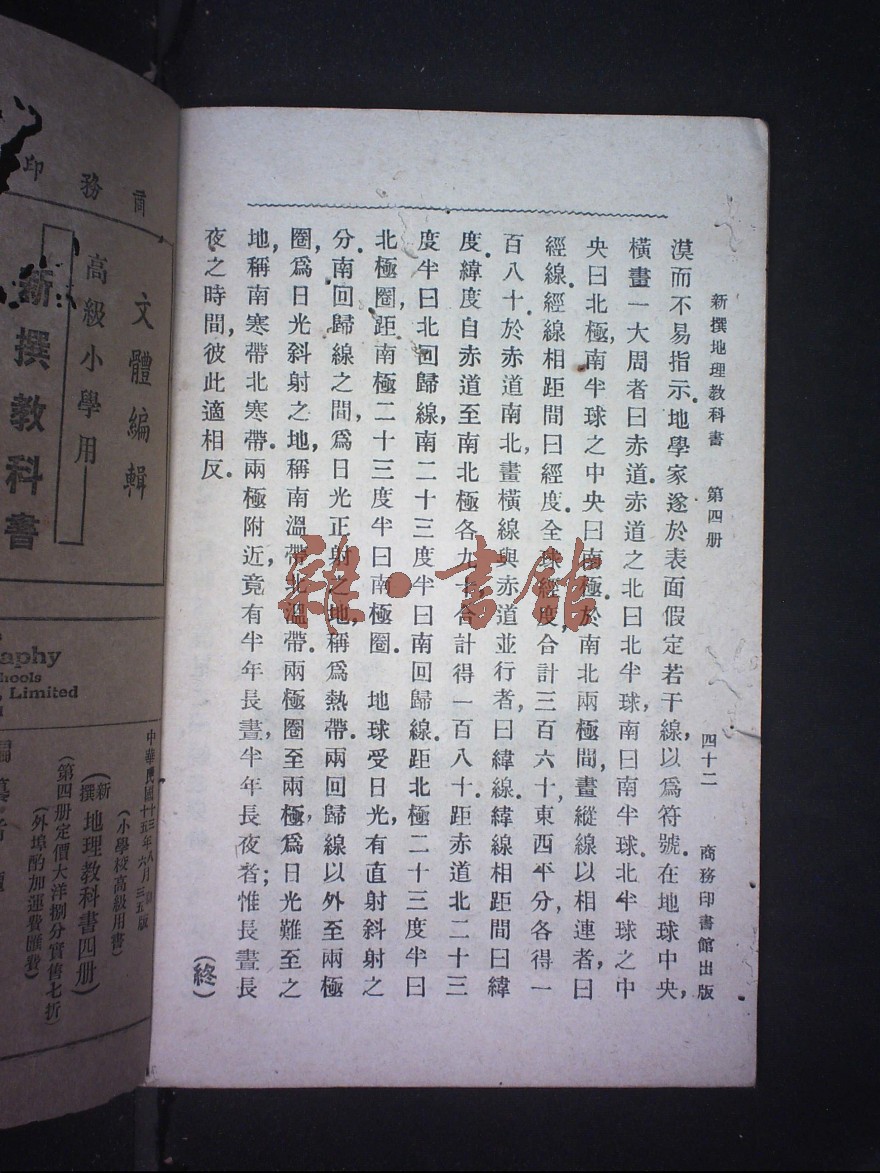 新撰地理教科書　第四册　四十二　商務印書館出版
漠而不易指示.地學家遂於表面假定若干線,以爲符號.在地球中央,
橫畫一大周者曰赤道.赤道之北曰北半球,南曰南半球.北半球之中
央曰北極,南半球之中央曰南極.於南北兩極間,畫縱線以相連者,曰
經線.經線相距間曰經度.全球經度,合計三百六十,東西平分,各得一
百八十.於赤道南北,畫橫線與赤道並行者,曰緯線.緯線相距間曰緯
度.緯度自赤道至南北極各九十,合計得一百八十.距赤道北二十三
度半曰北回歸線,南二十三度半曰南回歸線.距北極二十三度半曰
北極圈,距南極二十三度半曰南極圈.　地球受日光,有直射斜射之
分.南回歸線之間,爲日光正射之地,稱爲熱帶.兩回歸線以外至兩極
圈,爲日光斜射之地,稱南溫帶北溫帶.兩極圈至兩極,爲日光難至之
地,稱南寒帶北寒帶.兩極附近,竟有半年長晝,半年長夜者;惟長晝長
夜之時間,彼此適相反.
（終）
雜·書館
商務印
文體編輯
高級小學用
新撰教科書
aphy
hools
, Limited
中華民國
十三年八月
十五年六月三五版
（小學校高級用書）
（新撰地理教科書四册）
（第四册定價大洋捌分實售七折）
（外埠酌加運費匯費）